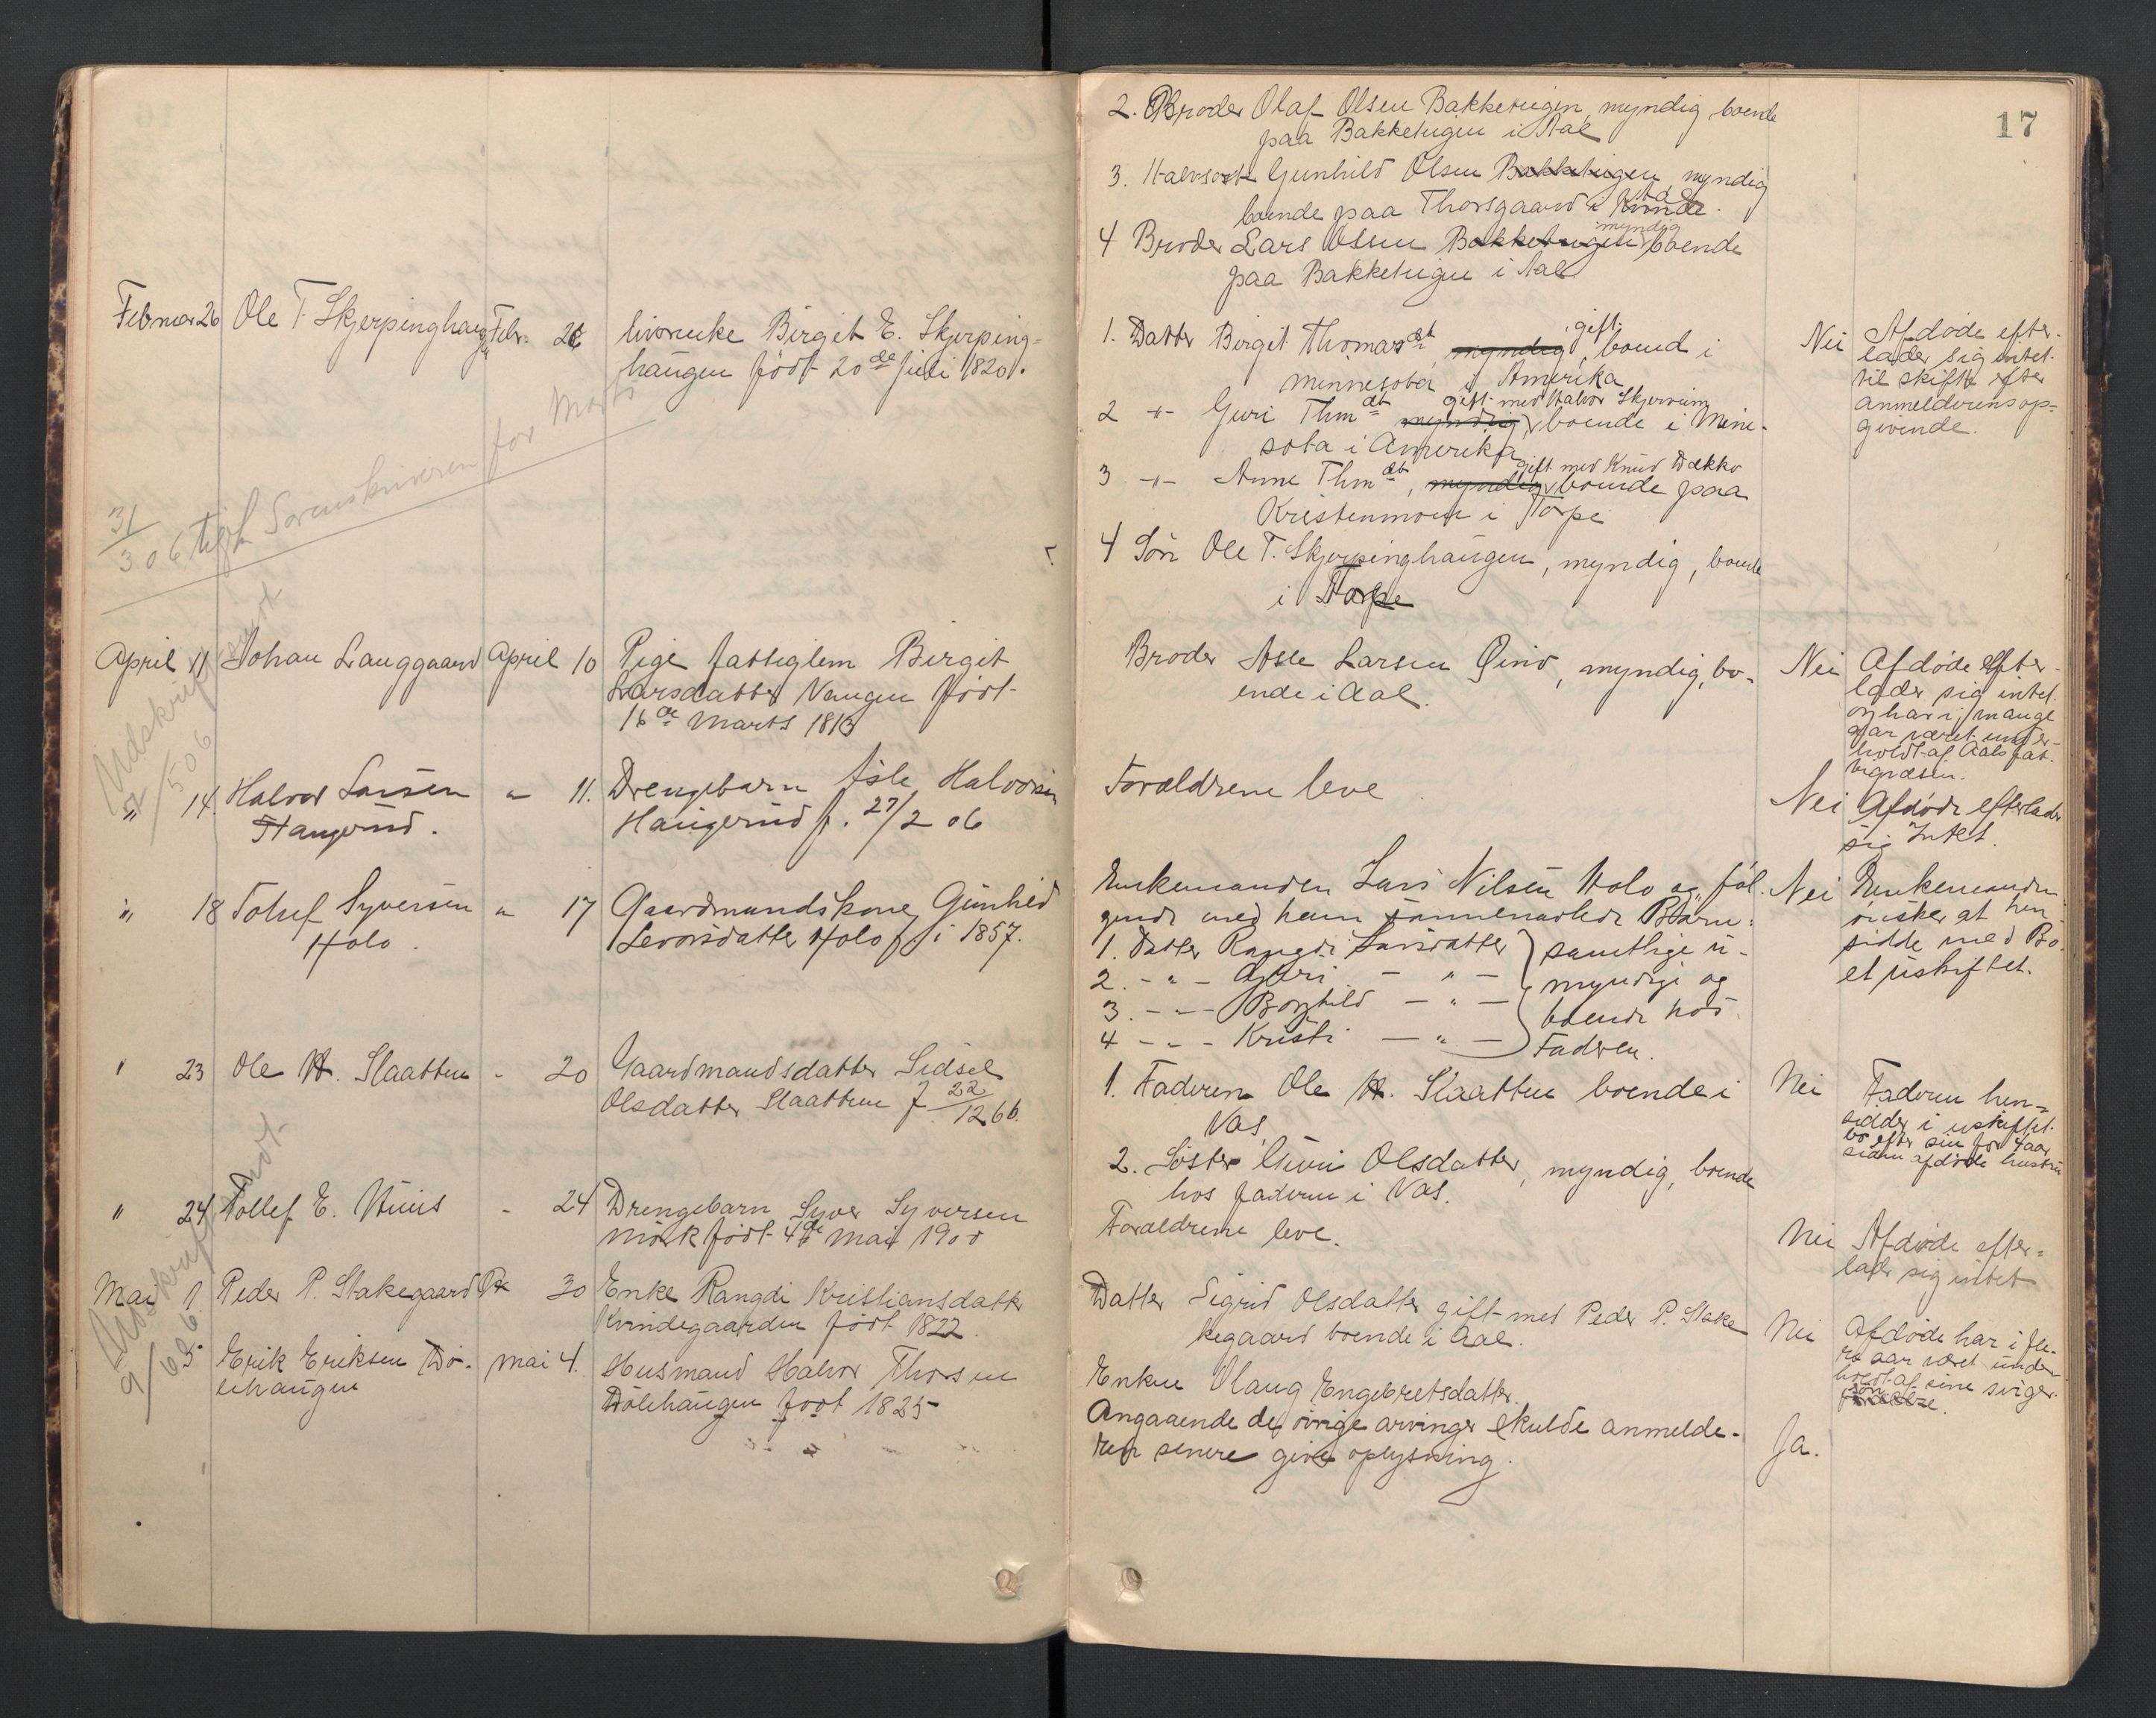 17
2. Broder Olaf Olsen Bakketeigen, myndig, boende
paa Bakketeigen i Aal
3. Halvsøst Gunhild Olsen Bakketeigen myndig
boende paa Thorsgaard i
4 Broder Lars Olsen Bakketeigen myndig boende
paa Bakketeigen i Aal
Februar 26 Ole T. Skjerpinghaugen Febr. 26 livørenke Birgit E. Skjerping=
haugen født 20de juli 1820.
1. Datter Birgit Thomasdt, myndig, gift, boend i
Minnesota i Amerika
2 -"- Guri Thmdt myndig gift med Halvor Skjervum boende i Mine-
sota i Amerika
3 -"- Anne Thmdt, myndig gift med Knud Dekko boende paa
Kristenmoen i Torpe
4 Søn Ole T. Skjerpinghaugen, myndig, boende
i Torpe
Nei Afdøde efter-
lader sig intet
til skifte efter
anmelderens op=
givende.
31/3 06 Sorenskriveren for Marts
April 11 Johan Langgaard April 10 Pige fattiglem Birgit
Larsdatter Vangen født
16de Marts 1813
Broder Asle Larsen Qind, myndig, bo-
ende i Aal.
Nei Afdøde efter-
lader sig intet
og har i mange
aar været under-
holdt af Aals fat-
Udskrift sendt
5/5 06
" 14. Halvor Larsen " 11. Drengebarn Asle Halvorsen
Haugerud. Haugerud f. 27/2 06
Forældrene leve.
Nei Afdøde efterlader
sig Intet.
" 18 Tolief Syversen " 17 Gaardmandskone Gunhild
Holo. Levorsdatter Holo f. i 1857.
Enkemanden Lars Nilsen Holo og føl-
gende med ham sammenavlede Børn:
1. Datter Rangdi Larsdatter
2. -"- Guri - " -
3. -"- Borghild - " -
4 -"- Kristi - " -
samtlige u-
myndige og
boende hos
Faderen.
Nei Enkemanden
ønsker at hen-
sidde med Bo-
et uskiftet.
" 23 Ole H. Slaatten - 20 Gaardmandsdatter Sidsel
Olsdatter Slaatten f 22/12 66.
1. Faderen Ole H. Slaatten boende i
Vas.
2. Søster Guri Olsdatter, myndig, boende
hos faderen i Vas.
Nei Faderen hen=
sidder i uskiftet
bo efter sin for 4 aar
siden afdøde hustru
" 24 Tollef E. Huus - 24 Drengebarn Syver Syversen
Mørk født 4de Mai 1900
Forældrene leve.
Nei Afdøde efter=
lader sig intet
Udskrift sendt
9/6 06
Mai 1. Peder P. Stakegaard 30 Enke Rangdi Kristiansdatter
Kvindegaarden født 1822.
Datter Sigrid Olsdatter gift med Peder P. Stake
kegaard boende i Aal.
Nei Afdøde har i fle-
re aar været under
holdt af sine sviger-
5 Erik Eriksen Dø- Mai 4. Husmand Halvor Thorsen
lehaugen Dølehaugen født 1825
Enken Olaug Engebretsdatter.
Angaaende de øvrige arvinger skulde anmelde-
ren senere give oplysning.
Ja.